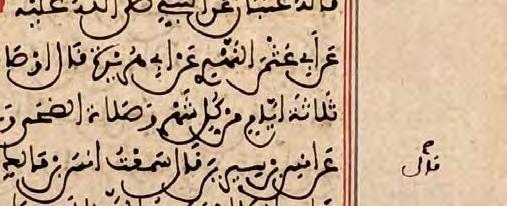 قاله عتبان عن النبي صلى الله عليه
عن أبي عثمن النهدي عن أبي هريرة قال أوصا
ثلاثة أيام من كل شهر وصلاة الضحى و
عن أنس بن سيرين قال سمعت أنس بن مالك
قال